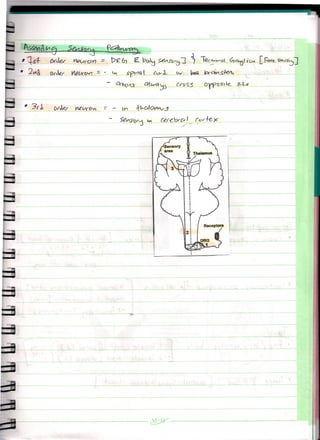 Ascending Sensory Pathways
• 1st order neuron = DRG [body sensory] & Ganglion [Face sensory]
• 2nd order neuron = - in spinal cord or brainstem
- always cross opposite side
• 3rd order neuron = - in thalamus
- Sensory in cerebral cortex
Sensory area
Thalamus
3
Receptors
DRG
2
1